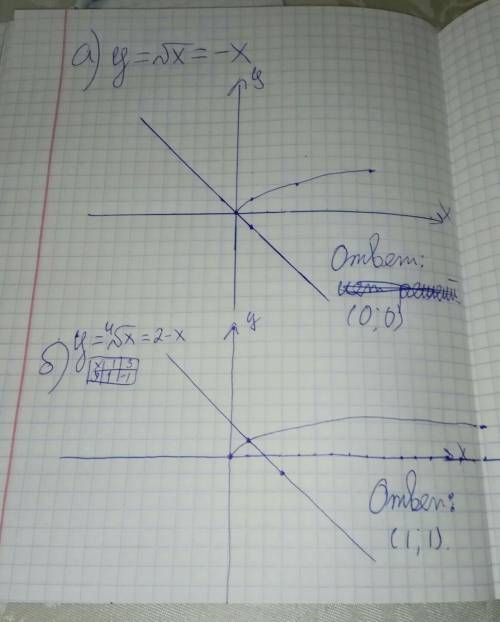 а) y = √x = -x
y
x
Ответ:
нет решений
(0; 0)
y
б) y = ⁴√x = 2-x
x 1 3
y 1 -1
x
Ответ:
(1; 1).